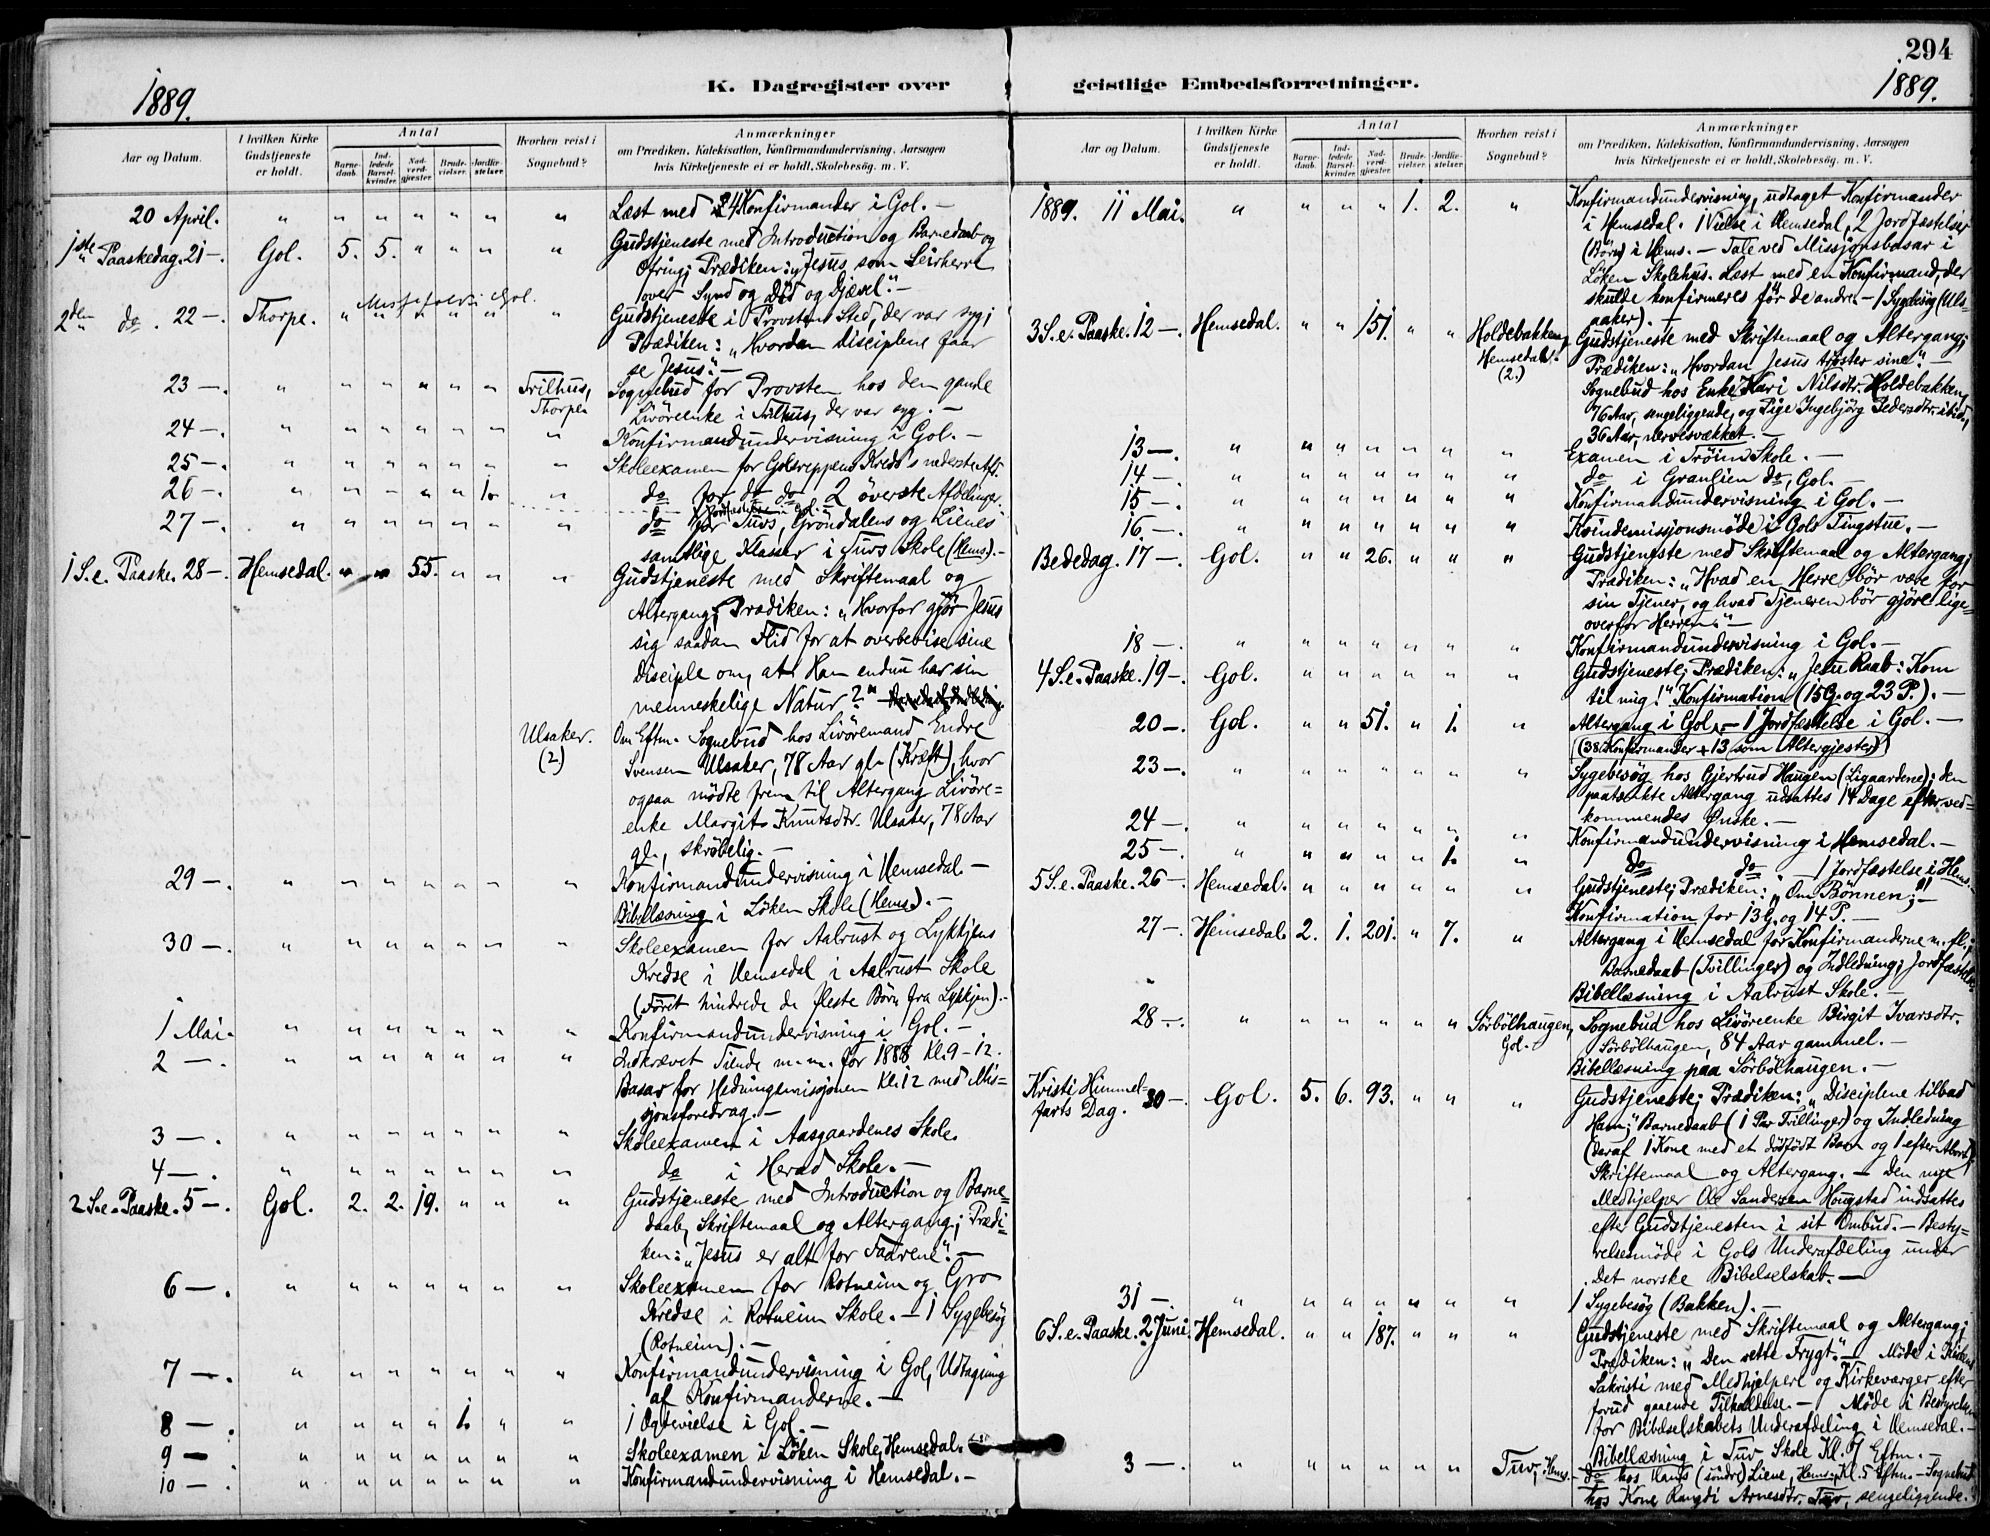 294
1889.
K. Dagregister over
geistlige Embedsforretninger.
1889.
Aar og Datum.
I hvilken Kirke Gudstjeneste er holdt.
Antal
Barnedaab.
Indledede Barselkvinder.
Nadverdgjæster.
Brudevielser.
Jordfæstelser.
Hvorhen reist i Sognebud?
Anmærkninger
om Prædiken, Katekisation, Konfirmandundervisning, Aarsagen
hvis Kirketjeneste ei er holdt, Skolebesög. m. V.
20 April. " " " " " " " Læst med 24 Konfirmander i Gol. —
1ste Paaskedag. 21 —. Gol. 5. 5. " " " " Gudstjeneste med Introduction og Barnedaab og
Ofring; Prædiken: "Jesus som Seierherre
over Synd og Död og Djævel". —
2den do. 22 —. Thorpe. Messefald i Gol. " " " " " " Gudstjeneste i Provstens Sted, der var syg;
Prædiken: "Hvordan Disciplene faar
se Jesus". —
23 —. " " " " " " Trilhus, Thorpe. Sognebud for Provsten hos den gamle
Livöreenke i Trilhus, der var syg. —
24 —. " " " " " " " Konfirmandundervisning i Gol. —
25 —. " " " " " " " Skoleexamen for Golsreppens Kreds's nederste Afd.
26 —. " " " " " 1. " do for do do 2 överste Afdelinger.
1 Jordfæstelse i Gol. —
27 —. " " " " " " " do for Tuvs, Gröndalens og Lienes
samtlige Klasser i Tuvs Skole (Hems). —
1 S. e. Paaske. 28 —. Hemsedal. " " 55. " " " Gudstjeneste med Skriftemaal og
Altergang; Prædiken: "Hvorfor gjör Jesus
sig saadan Flid for at overbevise sine
Disciple om, at Han endnu har sin
menneskelige Natur?" —
Ulsaker. (2) Om Eftm. Sognebud hos Livöremand Endre
Svensen Ulsaker, 78 Aar gl. (Kræft), hvor
ogsaa mödte frem til Altergang Livöre=
enke Margit Knutsdtr. Ulsaker, 78 Aar
gl., skröbelig. —
29 —. " " " " " " " Konfirmandundervisning i Hemsedal. —
Bibellæsning i Löken Skole (Hems). —
30 —. " " " " " " " Skoleexamen for Aalrust og Lykkjens
Kredse i Hemsedal i Aalrust Skole
(Föret hindrede de fleste Börn fra Lykkjen). —
1 Mai. " " " " " " " Konfirmandundervisning i Gol. —
2 —. " " " " " " " Indkrævet Tiende m. m. for 1888 Kl. 9–12.
Basar for Hedningemissjonen Kl. 12 med Mis=
sjonsforedrag. —
3 —. " " " " " " " Skoleexamen i Aasgaardenes Skole.
4 —. " " " " " " " do i Herad Skole. —
2 S. e. Paaske. 5 —. Gol. 2. 2. 19. " " " Gudstjeneste med Introduction og Barne=
daab, Skriftemaal og Altergang; Prædi=
ken: "Jesus er alt for Faarene". —
6 —. " " " " " " " Skoleexamen for Rotneim og Gro
Kredse i Rotneim Skole. — 1 Sygebesög
(Rotneim). —
7 —. " " " " " " " Konfirmandundervisning i Gol, Udtagning
af Konfirmanderne. —
8 —. " " " " 1. " " 1 Ægtevielse i Gol. —
9 —. " " " " " " " Skoleexamen i Löken Skole, Hemsedal.
10 —. " " " " " " " Konfirmandundervisning i Hemsedal. —
Aar og Datum.
I hvilken Kirke Gudstjeneste er holdt.
Antal
Barnedaab.
Indledede Barselkvinder.
Nadverdgjæster.
Brudevielser.
Jordfæstelser.
Hvorhen reist i Sognebud?
Anmærkninger
om Prædiken, Katekisation, Konfirmandundervisning, Aarsagen
hvis Kirketjeneste ei er holdt, Skolebesög. m. V.
1889. 11 Mai. " " " " 1. 2. " Konfirmandundervisning, udtaget Konfirmander
i Hemsedal. 1 Vielse i Hemsedal, 2 Jordfæstelser
(Börn) i Hems. — Tale ved Missjonsbasar i
Löken Skolehus. Læst med en Konfirmand, der
skulde konfirmeres för de andre. — 1 Sygebesög (Uls=
aaker).
3 S. e. Paaske. 12 —. Hemsedal. " " 151. " " Holdebakken, Hemsedal. (2.) Gudstjeneste med Skriftemaal og Altergang;
Prædiken: "Hvordan Jesus tröster sine". —
Sognebud hos Enke Kari Nilsdtr. Holdebakken,
76 Aar, sengeliggende, og Pige Ingebjörg Pedersdtr. ibid,
36 Aar, nervesvækket. —
13 —. " " " " " " " Examen i Tröim Skole. —
14 —. " " " " " " " do i Granlien do, Gol. —
15 —. " " " " " " " Konfirmandundervisning i Gol. —
16 —. " " " " " " " Kvindemissjonsmöde i Gols Tingstue. —
Bededag. 17 —. Gol. " " 26. " " " Gudstjeneste med Skriftemaal og Altergang;
Prædiken: "Hvad en Herre bör være for
sin Tjener, og hvad Tjeneren bör gjöre lige=
overfor Herren". —
18 —. " " " " " " " Konfirmandundervisning i Gol. —
4 S. e. Paaske. 19 —. Gol. " " " " " " Gudstjeneste; Prædiken: "Jesu Raab: Kom
til mig!" Konfirmation (15 G. og 23 P.). —
20 —. Gol. " " 51. " 1. " Altergang i Gol. — 1 Jordfæstelse i Gol. —
(38 Konfirmander + 13 som Altergjester)
23 —. " " " " " " " Sygebesög hos Gjertrud Haugen (Ligaardene); den
paatænkte Altergang udsattes 14 Dage efter ved=
kommendes Önske. —
24 —. " " " " " " " Konfirmandundervisning i Hemsedal. —
25 —. " " " " " 1. " do do. — 1 Jordfæstelse i Hems.
5 S. e. Paaske. 26 —. Hemsedal. " " " " " " Gudstjeneste; Prædiken: "Om Bönnen"; —
Konfirmation for 13 G. og 14 P. —
27 —. Hemsedal. 2. 1. 201. " 7. " Altergang i Hemsedal for Konfirmanderne m. fl.;
Barnedaab (Tvillinger) og Indledning; Jordfæstelse.
Bibellæsning i Aalrust Skole. —
28 —. " " " " " " Sörbölhaugen, Gol. Sognebud hos Livöreenke Birgit Ivarsdtr.
Sörbölhaugen, 84 Aar gammel. —
Bibellæsning paa Sörbölhaugen. —
Kristi Himmel=farts Dag. 30 —. Gol. 5. 6. 93. " " " Gudstjeneste; Prædiken: "Disciplene tilbad
Ham"; Barnedaab (1 Par Tvillinger) og Indledning
(deraf 1 Kone med et dödfödt Barn og 1 efter Abort),
Skriftemaal og Altergang. — Den nye
Medhjelper Ole Sandersen Hougstad indsattes
efter Gudstjenesten i sit Ombud. — Besty=
relsesmöde i Gols Underafdeling under
Det norske Bibelselskab. —
31 —. " " " " " " " 1 Sygebesög (Bakken). —
6 S. e. Paaske. 2 Juni. Hemsedal. " " 187. " " " Gudstjeneste med Skriftemaal og Altergang;
Prædiken: "Den rette Frygt". — Möde i Kirkens
Sakristi med Medhjelpere og Kirkeværger efter
forud gaaende Tilkaldelse. — Möde i Bestyrelsen
for Bibelselskabets Underafdeling i Hemsedal. —
Bibellæsning i Tuv Skole Kl. 7 Eftm. —
3 —. " " " " " " Tuv, Hems. do hos Hans (söndre) Liene, Hems. Kl. 5 Eftm. — Sognebud
hos Kone Rangdi Arnesdtr. Tuv, sengeliggende.